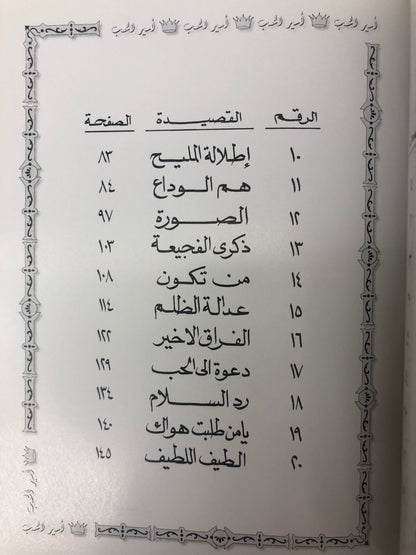 أسير الحب أسير الحب أسير الحب أسير الحب
الرقم القصيدة الصفحة
١٠ إطلالة المليح ٨٣
١١ هم الوداع ٨٤
١٢ الصورة ٩٧
١٣ ذكرى الفجيعة ١٠٣
١٤ من تكون ١٠٨
١٥ عدالة الظلم ١١٤
١٦ الفراق الاخير ١٢٢
١٧ دعوة الى الحب ١٢٩
١٨ رد السلام ١٣٤
١٩ يا من طلبت هواك ١٤٠
٢٠ الطيف اللطيف ١٤٥
أسير الحب
أسير الحب
أسير الحب